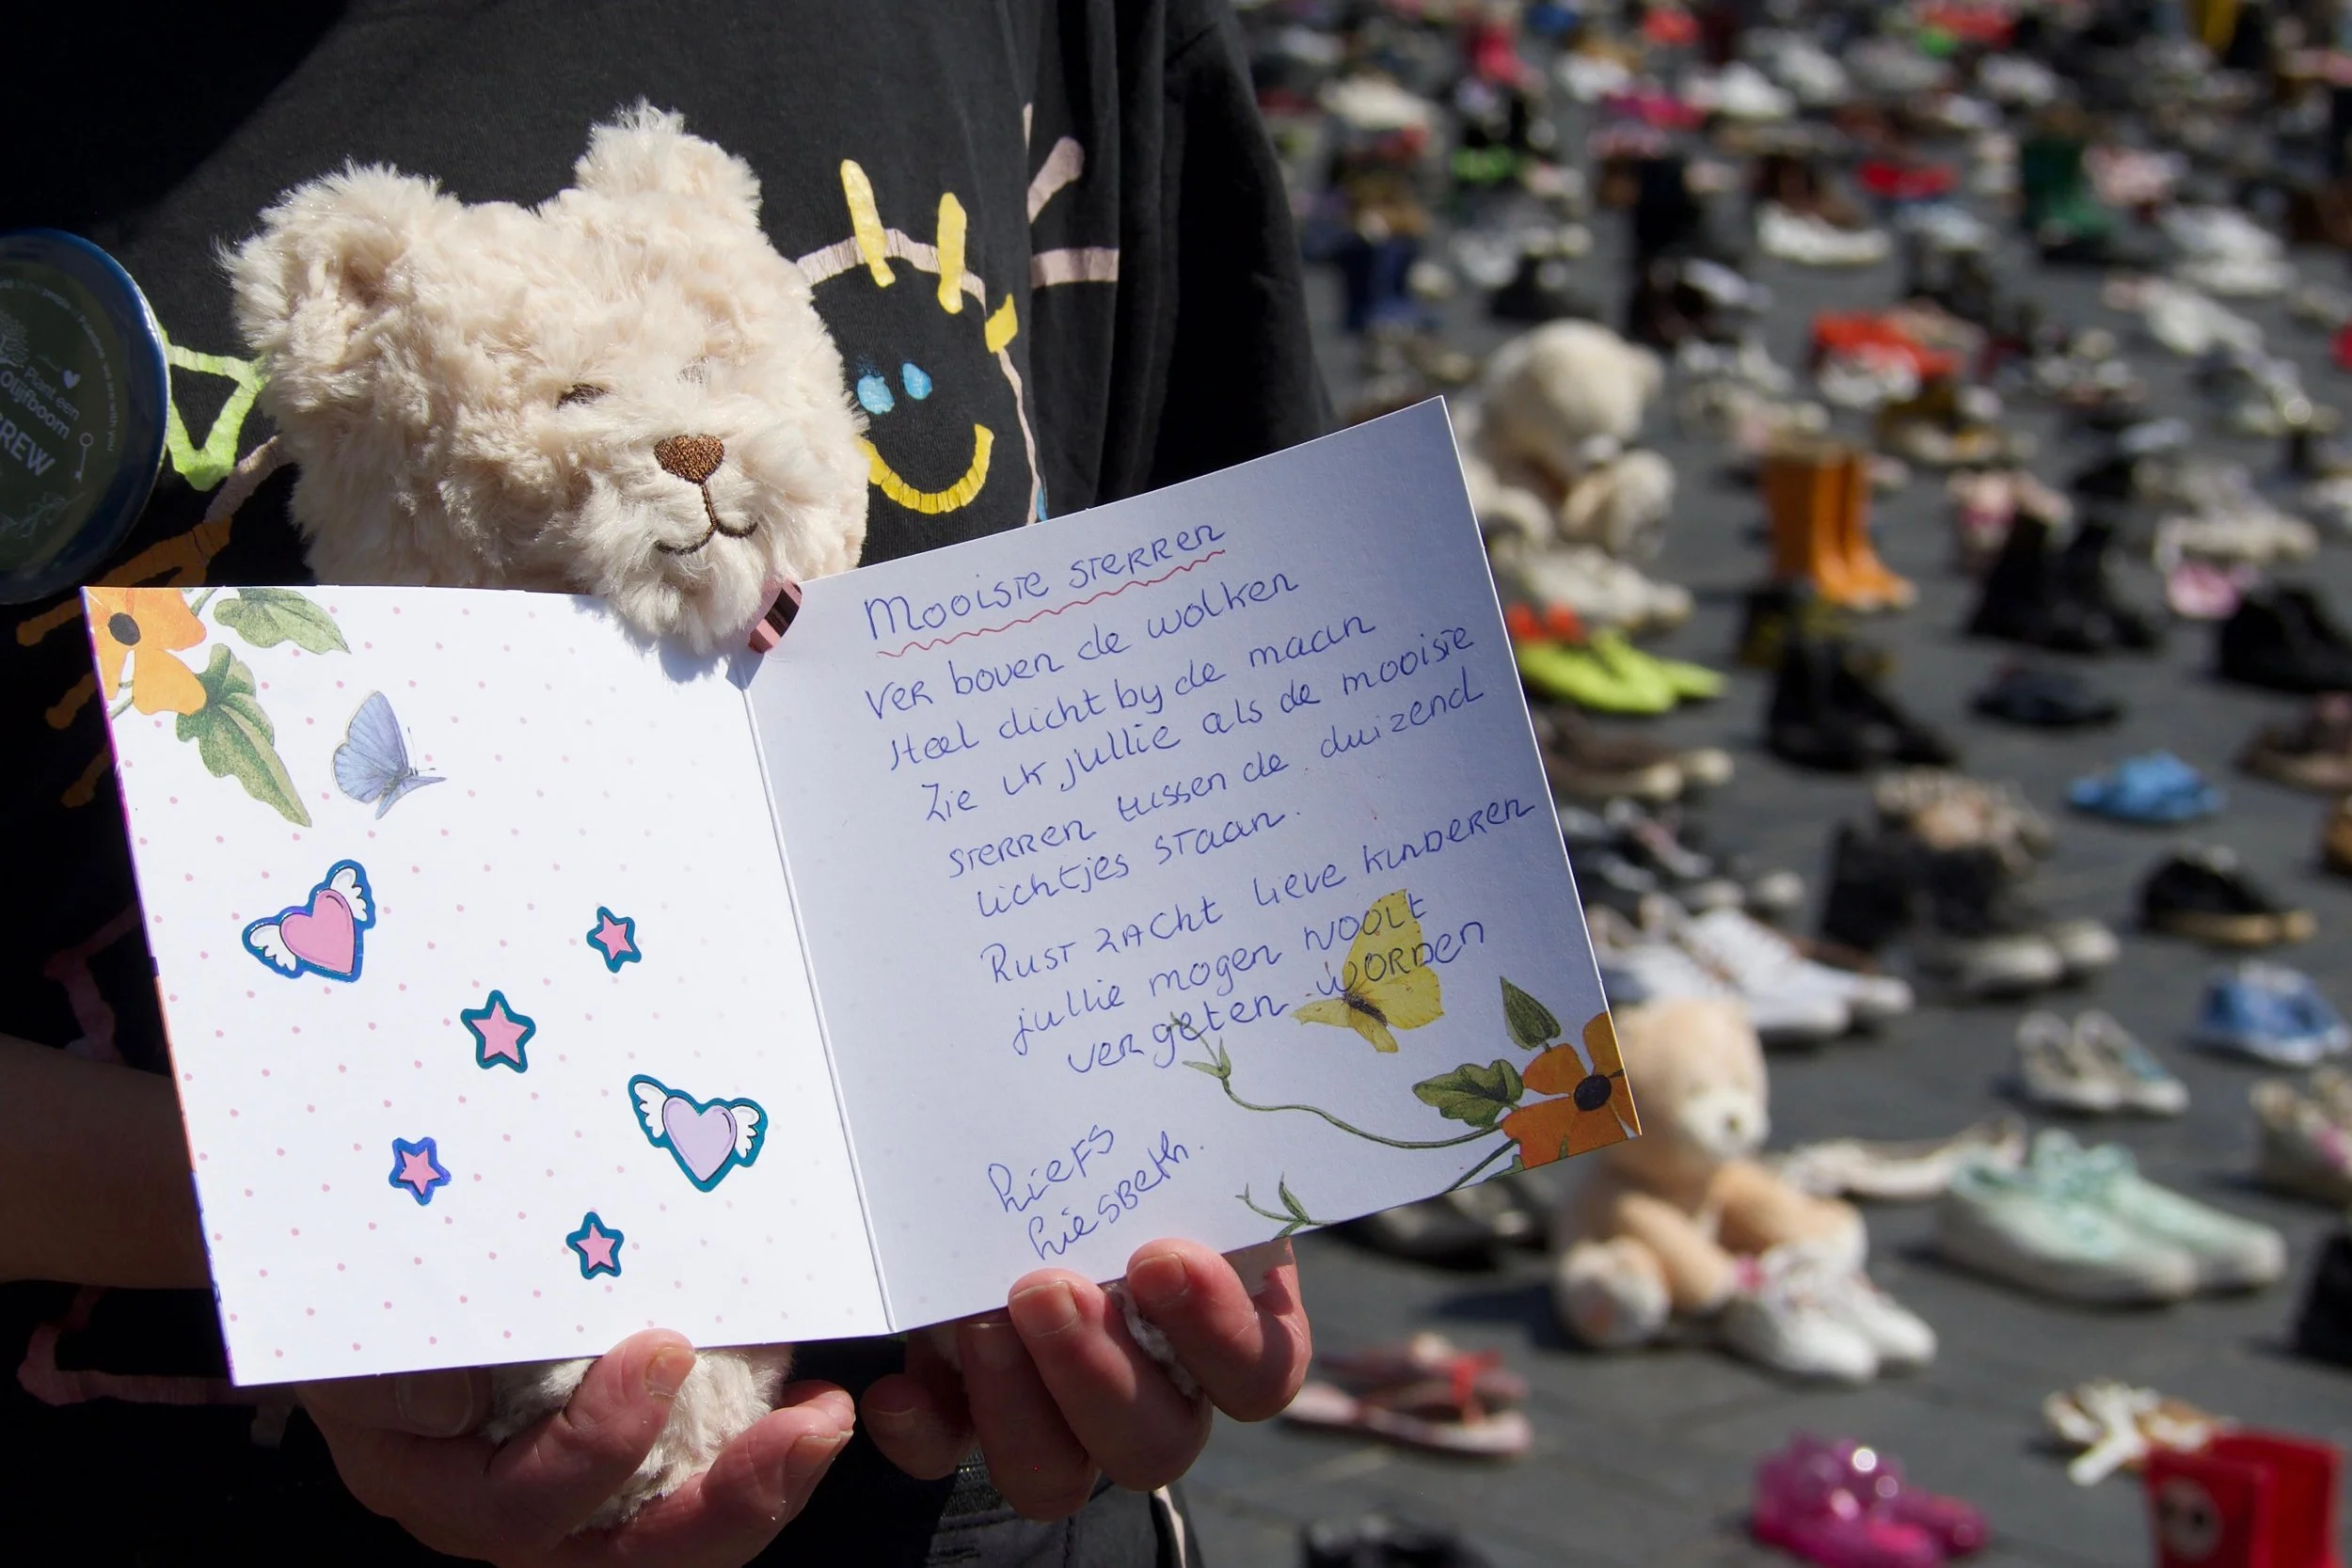 Plant een
Olijfboom
CREW
Mooiste sterren
Ver boven de wolken
Heel dicht by de maan
Zie ik jullie als de mooiste
sterren tussen de duizend
lichtjes staan.
Rust zacht lieve kinderen
jullie mogen nooit
vergeten worden
Liefs
Liesbeth.